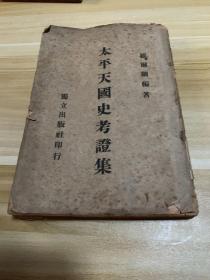 羅爾綱編著
太平天國史考證集
獨立出版社印行